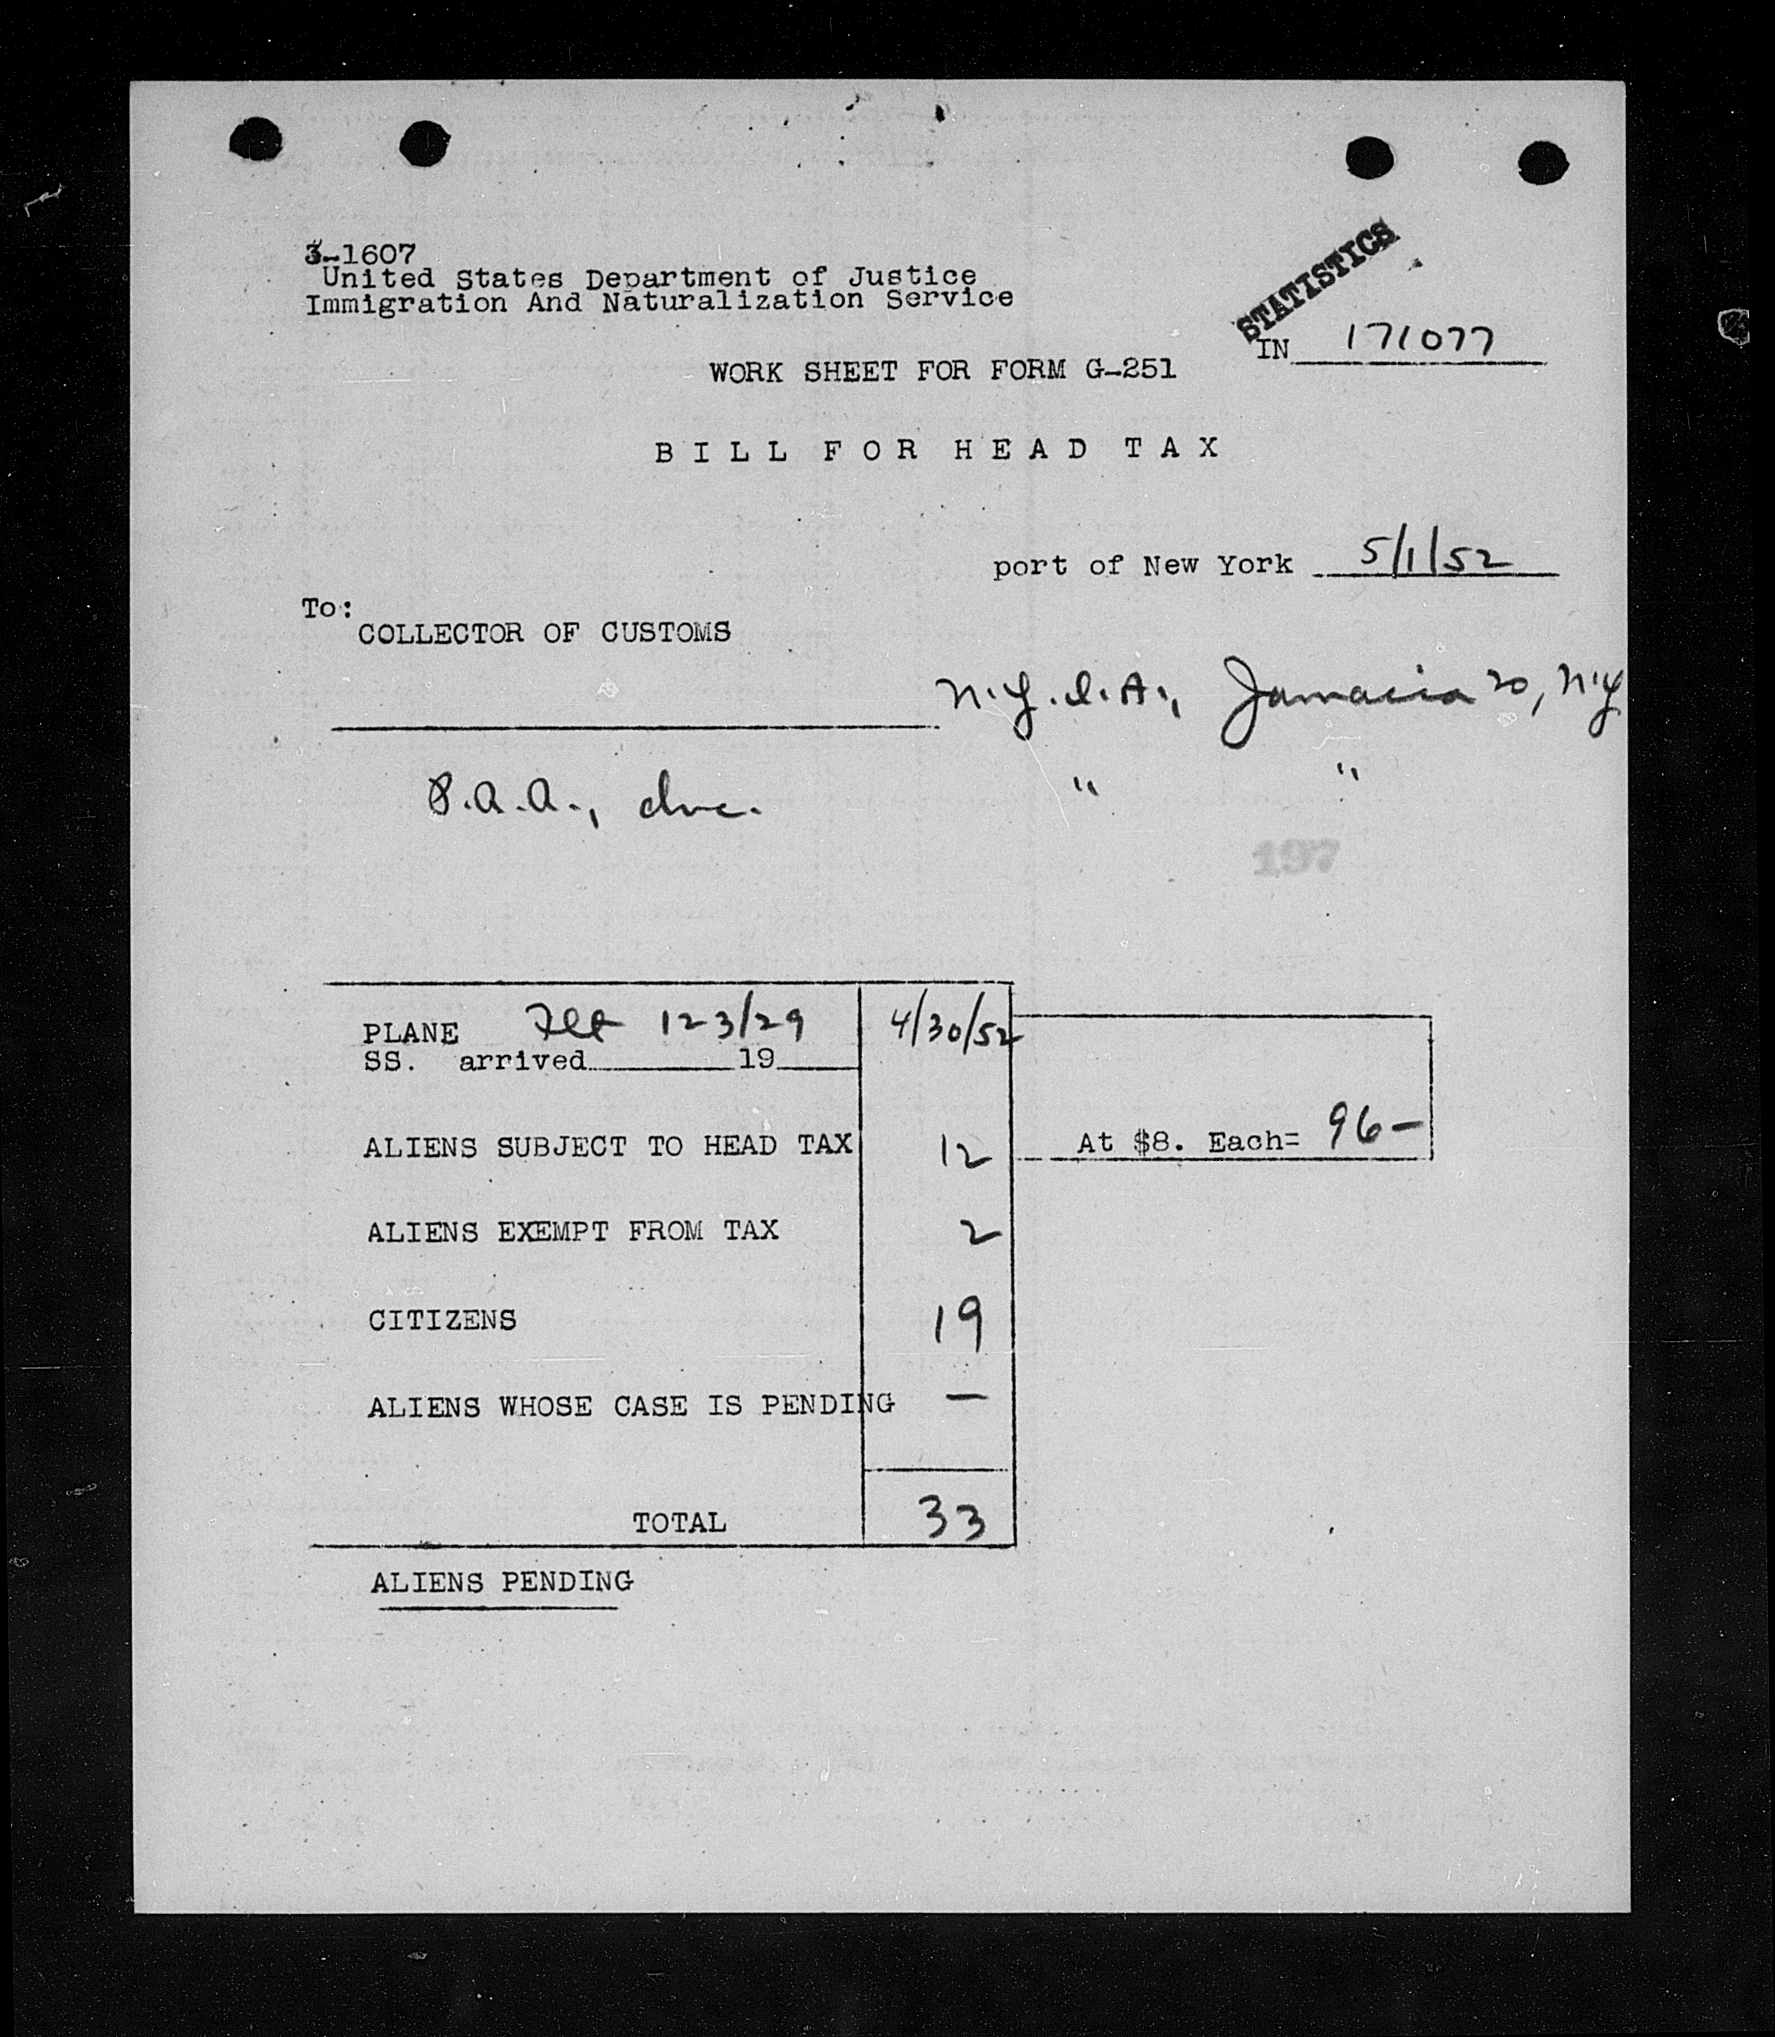 3-1607
United States Department of Justice
Immigration And Naturalization Service
STATISTICS
IN 171077
WORK SHEET FOR FORM G-251
BILL FOR HEAD TAX
port of New York 5/1/52
To:
COLLECTOR OF CUSTOMS
N.Y.I.A., Jamacia 20, N.Y
P.A.A., Inc. " "
197
PLANE Flt 123/29 4/30/52
SS. arrived 19
ALIENS SUBJECT TO HEAD TAX 12 At $8. Each= 96-
ALIENS EXEMPT FROM TAX 2
CITIZENS 19
ALIENS WHOSE CASE IS PENDING —
TOTAL 33
ALIENS PENDING